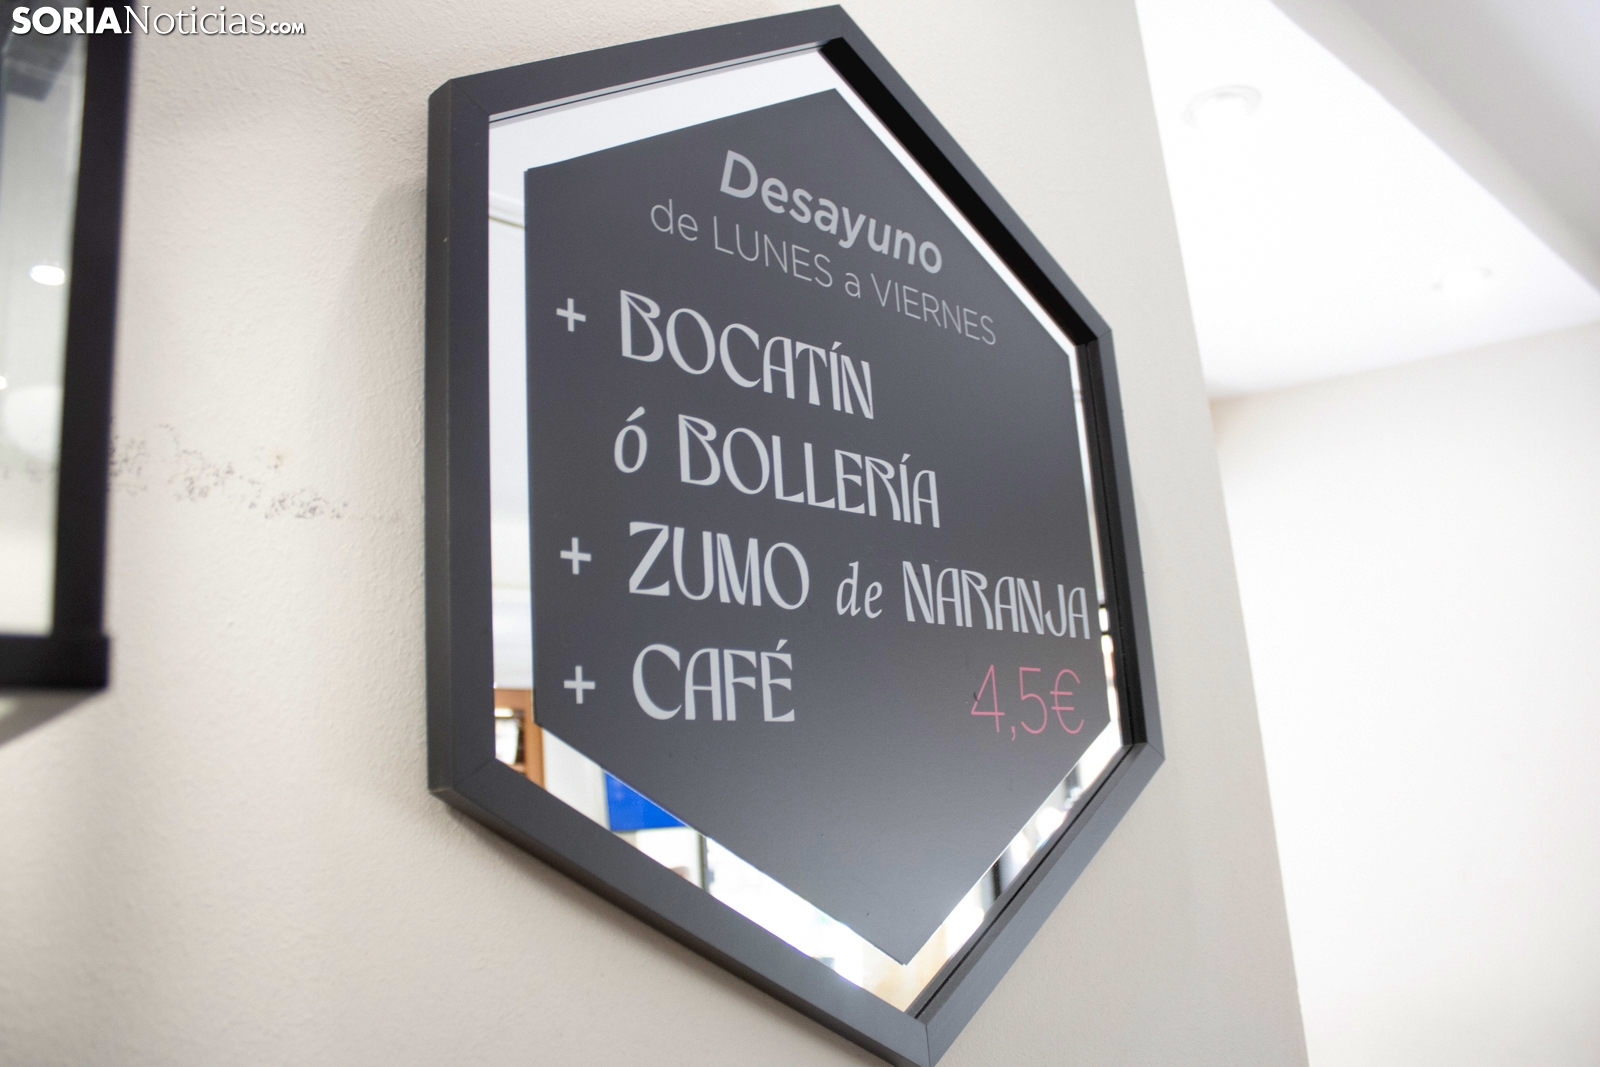 SORIANoticias.com
Desayuno
de LUNES a VIERNES
+ BOCATÍN
ó BOLLERÍA
+ ZUMO de NARANJA
+ CAFÉ 4,5€